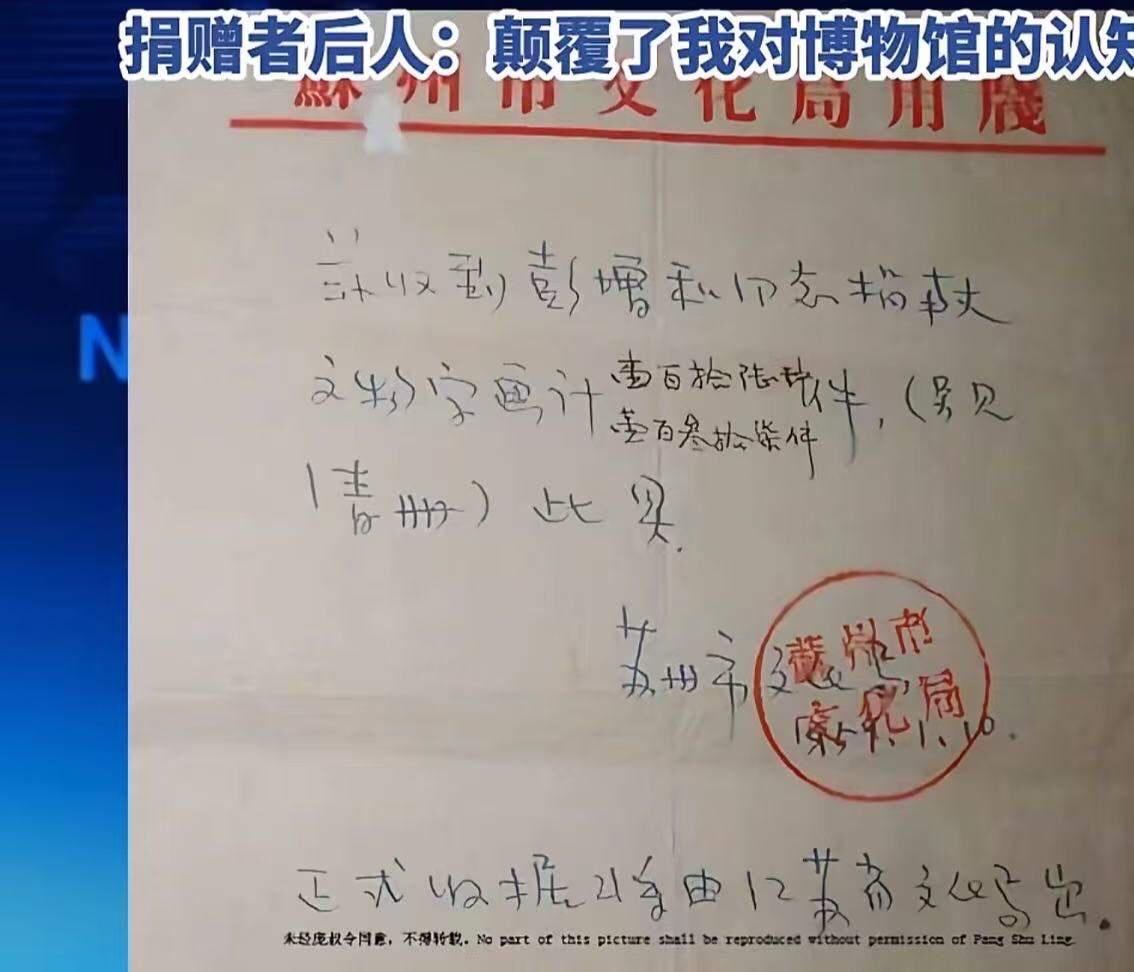 捐赠者后人：颠覆了我对博物馆的认知
蘇州市文化局用牋
N
兹收到彭增和同志捐献
文物字画计壹百叁拾柒件，（另见
清册）此具.
苏州市文化局
蘇州市
文化局
1959.1.10.
正式收据将由江苏省文化局出.
未经庞叔令同意，不得转载. No part of this picture shall be reproduced without permission of Pang Shu Ling